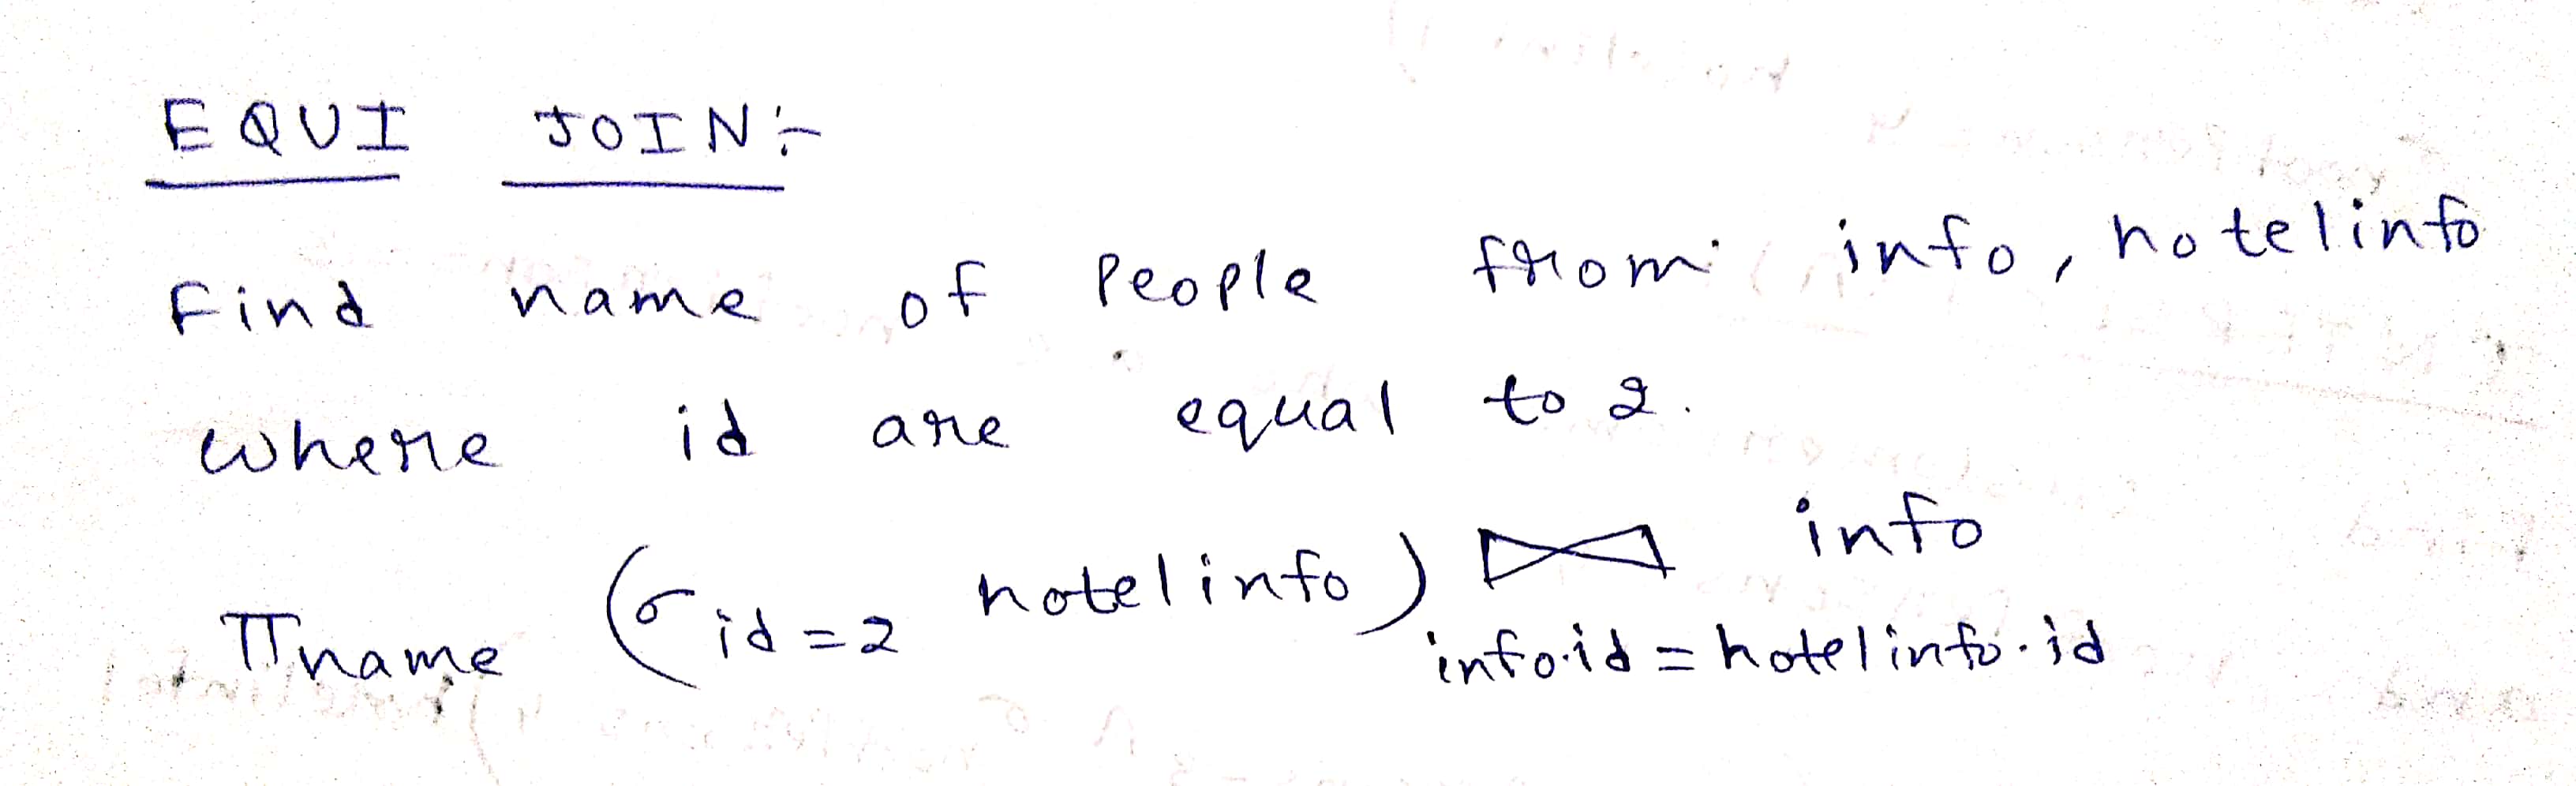 EQUI JOIN:-
Find name of People from info, hotelinfo
where id are equal to 2.
πname (σid=2 hotelinfo) ⋈ info
info.id = hotelinfo.id